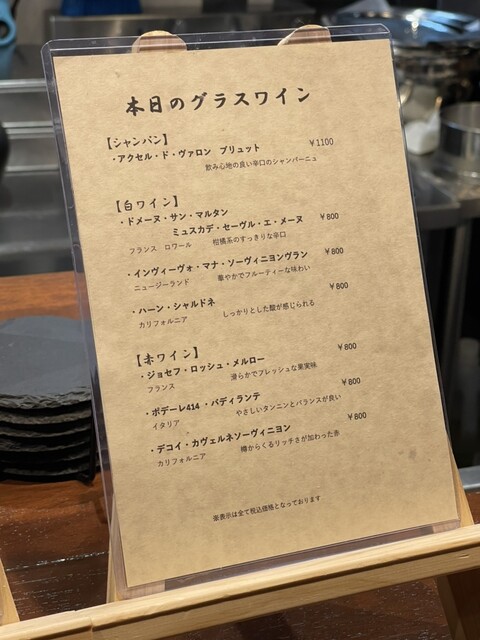 本日のグラスワイン
【シャンパン】
・アクセル・ド・ヴァロン ブリュット ¥1100
飲み心地の良い辛口のシャンパーニュ
【白ワイン】
・ドメーヌ・サン・マルタン
ミュスカデ・セーヴル・エ・メーヌ ¥800
フランス ロワール 柑橘系のすっきりな辛口
・インヴィーヴォ・マナ・ソーヴィニヨンヴラン ¥800
ニュージーランド 華やかでフルーティーな味わい
・ハーン・シャルドネ ¥800
カリフォルニア しっかりとした酸が感じられる
【赤ワイン】
・ジョセフ・ロッシュ・メルロー ¥800
フランス 滑らかでフレッシュな果実味
・ポデーレ414・バディランテ ¥800
イタリア やさしいタンニンとバランスが良い
・デコイ・カヴェルネソーヴィニヨン ¥800
カリフォルニア 樽からくるリッチさが加わった赤
※表示は全て税込価格となっております